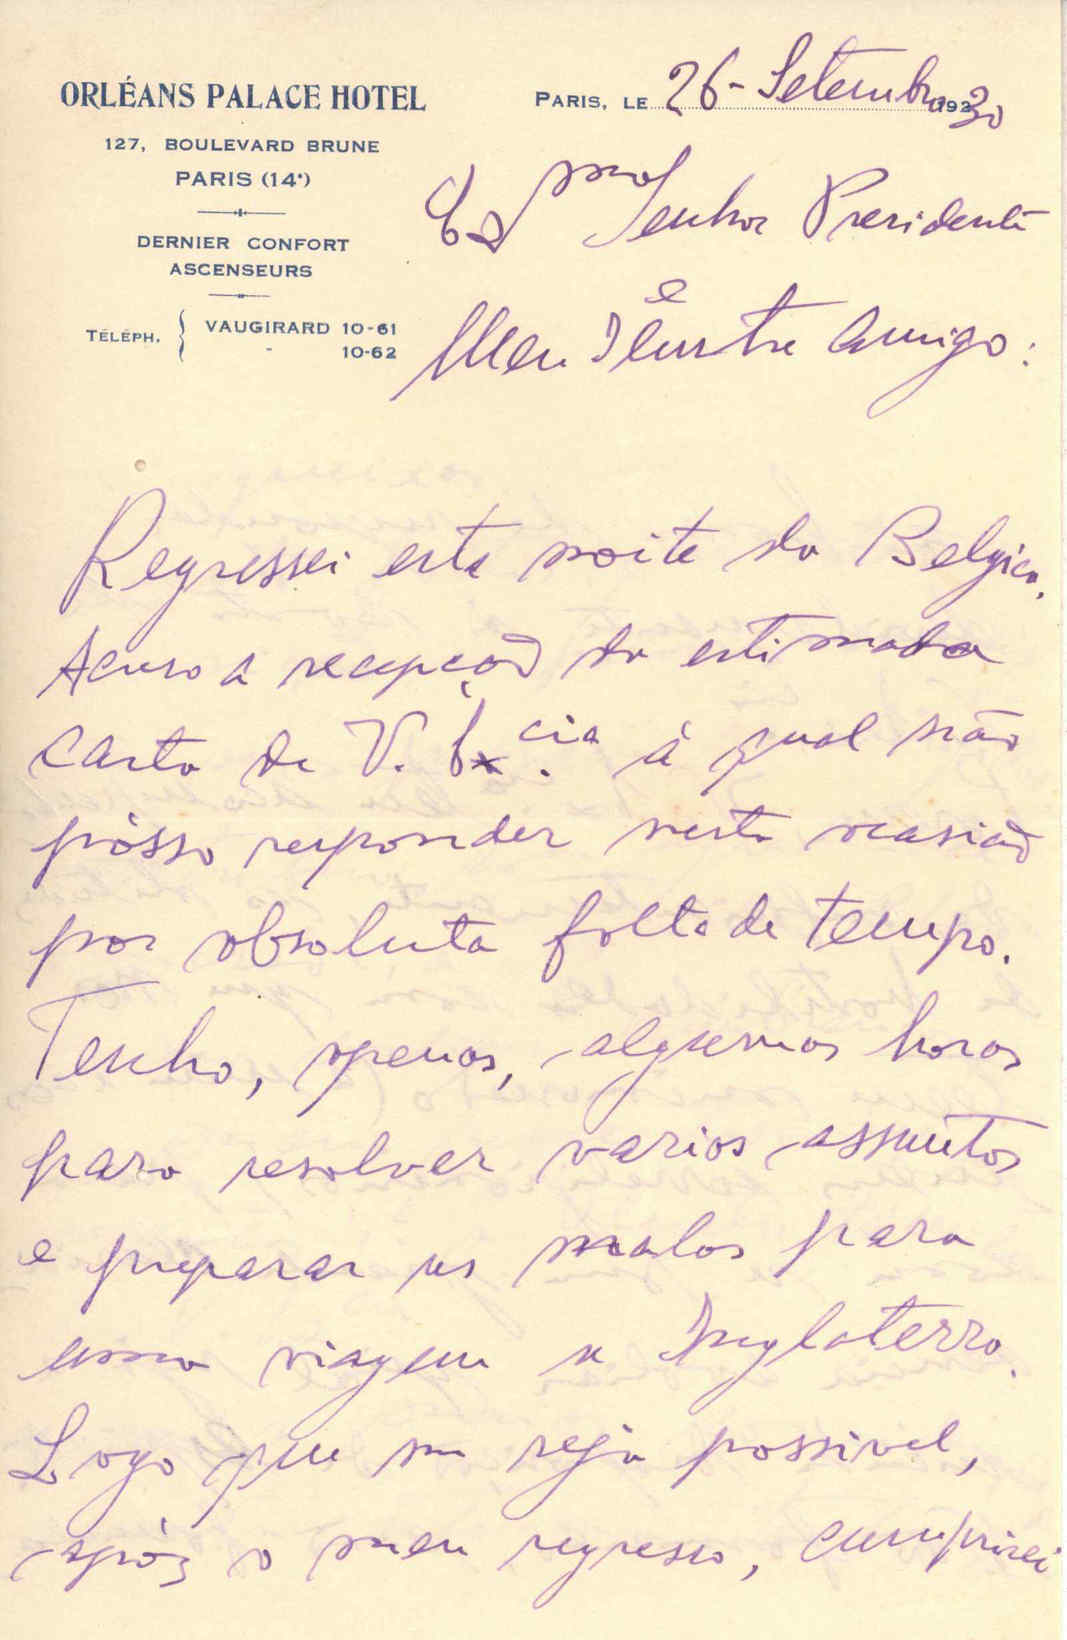 ORLÉANS PALACE HOTEL
127, BOULEVARD BRUNE
PARIS (14e)
DERNIER CONFORT
ASCENSEURS
TÉLÉPH. { VAUGIRARD 10-61
" 10-62
PARIS, LE 26-Setembro 1930
Exmo Senhor Presidente
e
Meu Ilustre Amigo:
Regressei esta noite da Belgica.
Acuso a recepção da estimada
carta de V. Ex.cia á qual não
pósso responder nesta ocasião
por absoluta falta de tempo.
Tenho, apenas, algumas horas
para resolver varios assuntos
e preparar as malas para
uma viagem a Inglaterra.
Logo que me seja possivel,
após o meu regresso, cumprirei